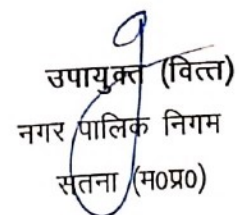 उपायुक्त (वित्त)
नगर पालिक निगम
सतना (म0प्र0)